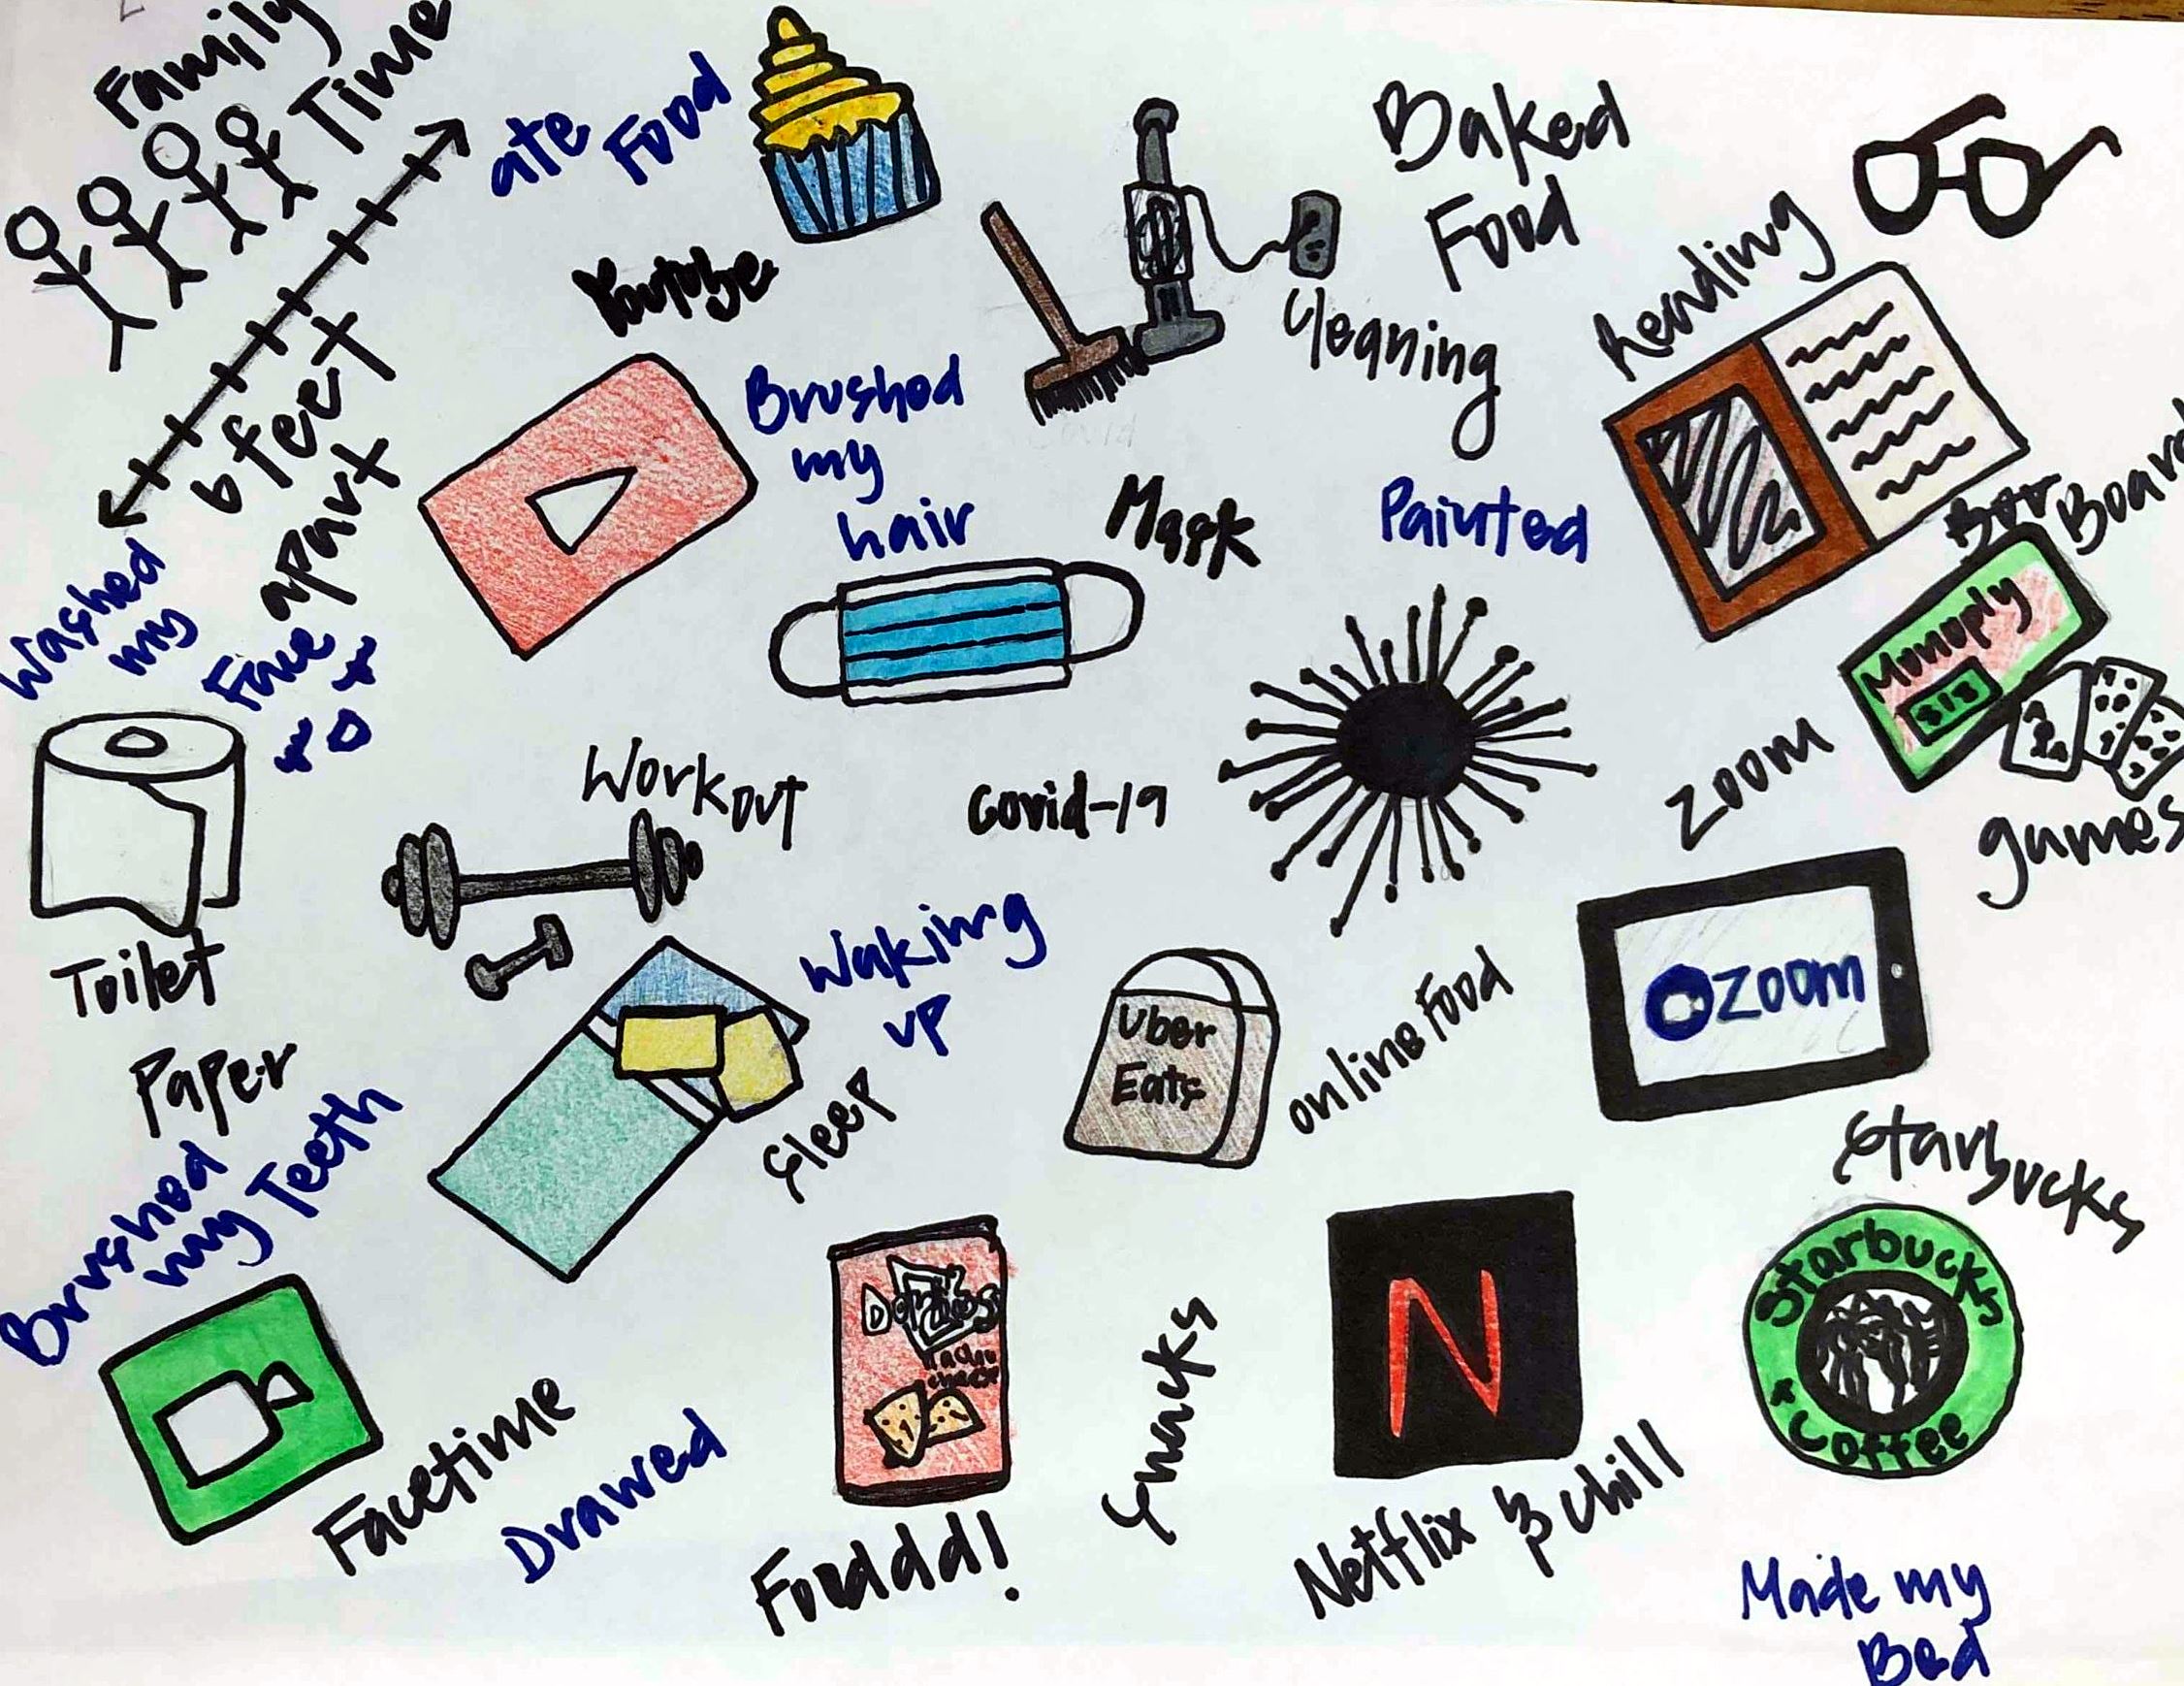 Family
Time
6 feet
apart
ate Food
Youtube
Brushed
my
hair
Cleaning
Baked
Food
Reading
Mask
Painted
Board
Monoply
games
Washed
my
Face
Toilet
Paper
Workout
Covid-19
zoom
zoom
Waking
up
Sleep
Uber
Eats
online Food
Starbucks
Starbucks
Coffee
Brushed
my Teeth
Facetime
Drawed
Doritos
Nacho
cheese
Fouddd!
Snacks
N
Netflix & chill
Made my
Bed